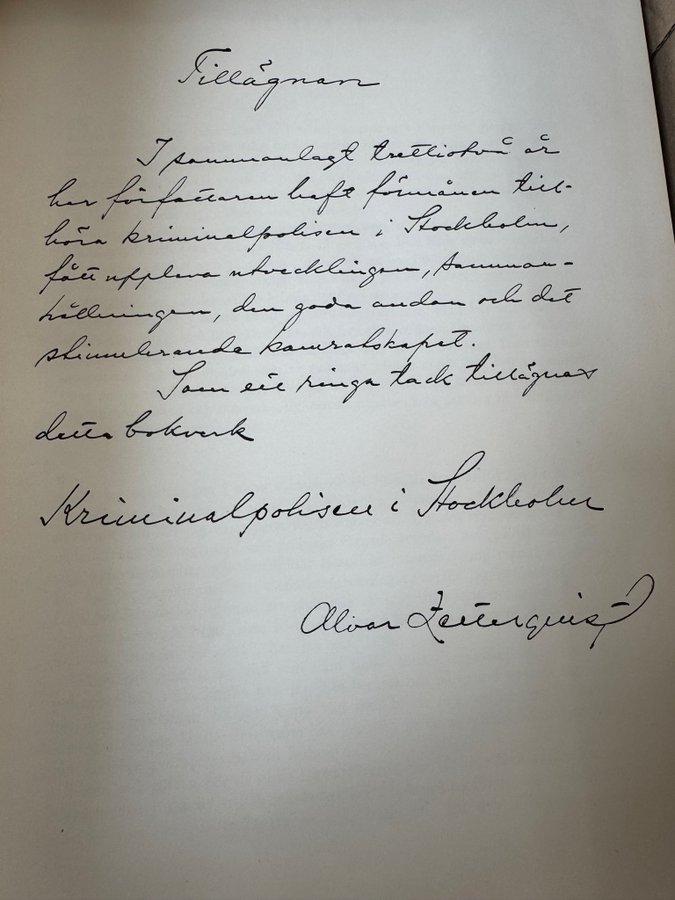 Tillägnan
I sammanlagt trettiotvå år
har författaren haft förmånen till-
höra kriminalpolisen i Stockholm,
fått uppleva utvecklingen, samman-
hållningen, den goda andan och det
stimulerande kamratskapet.
Som ett ringa tack tillägnas
detta bokverk
Kriminalpolisen i Stockholm
Alvar Zetterquist